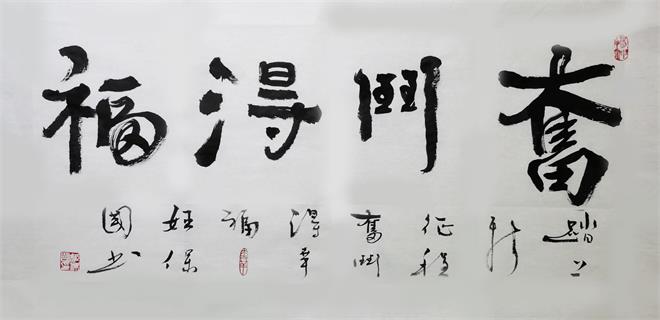 奮鬥得福
踏上新征程奮鬥得幸福
保國书